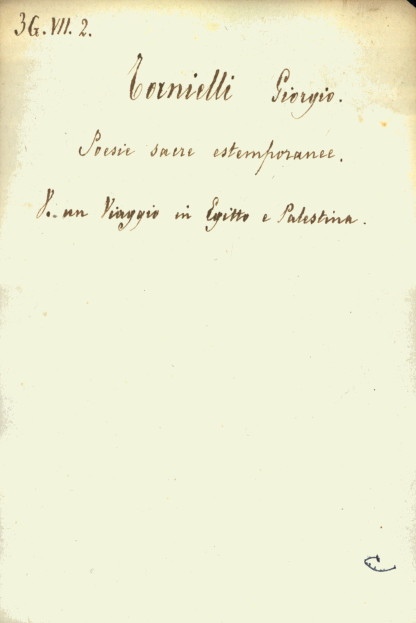 3G.VII.2.
Tornielli Giorgio.
Poesie sacre estemporanee.
V. un Viaggio in Egitto e Palestina.